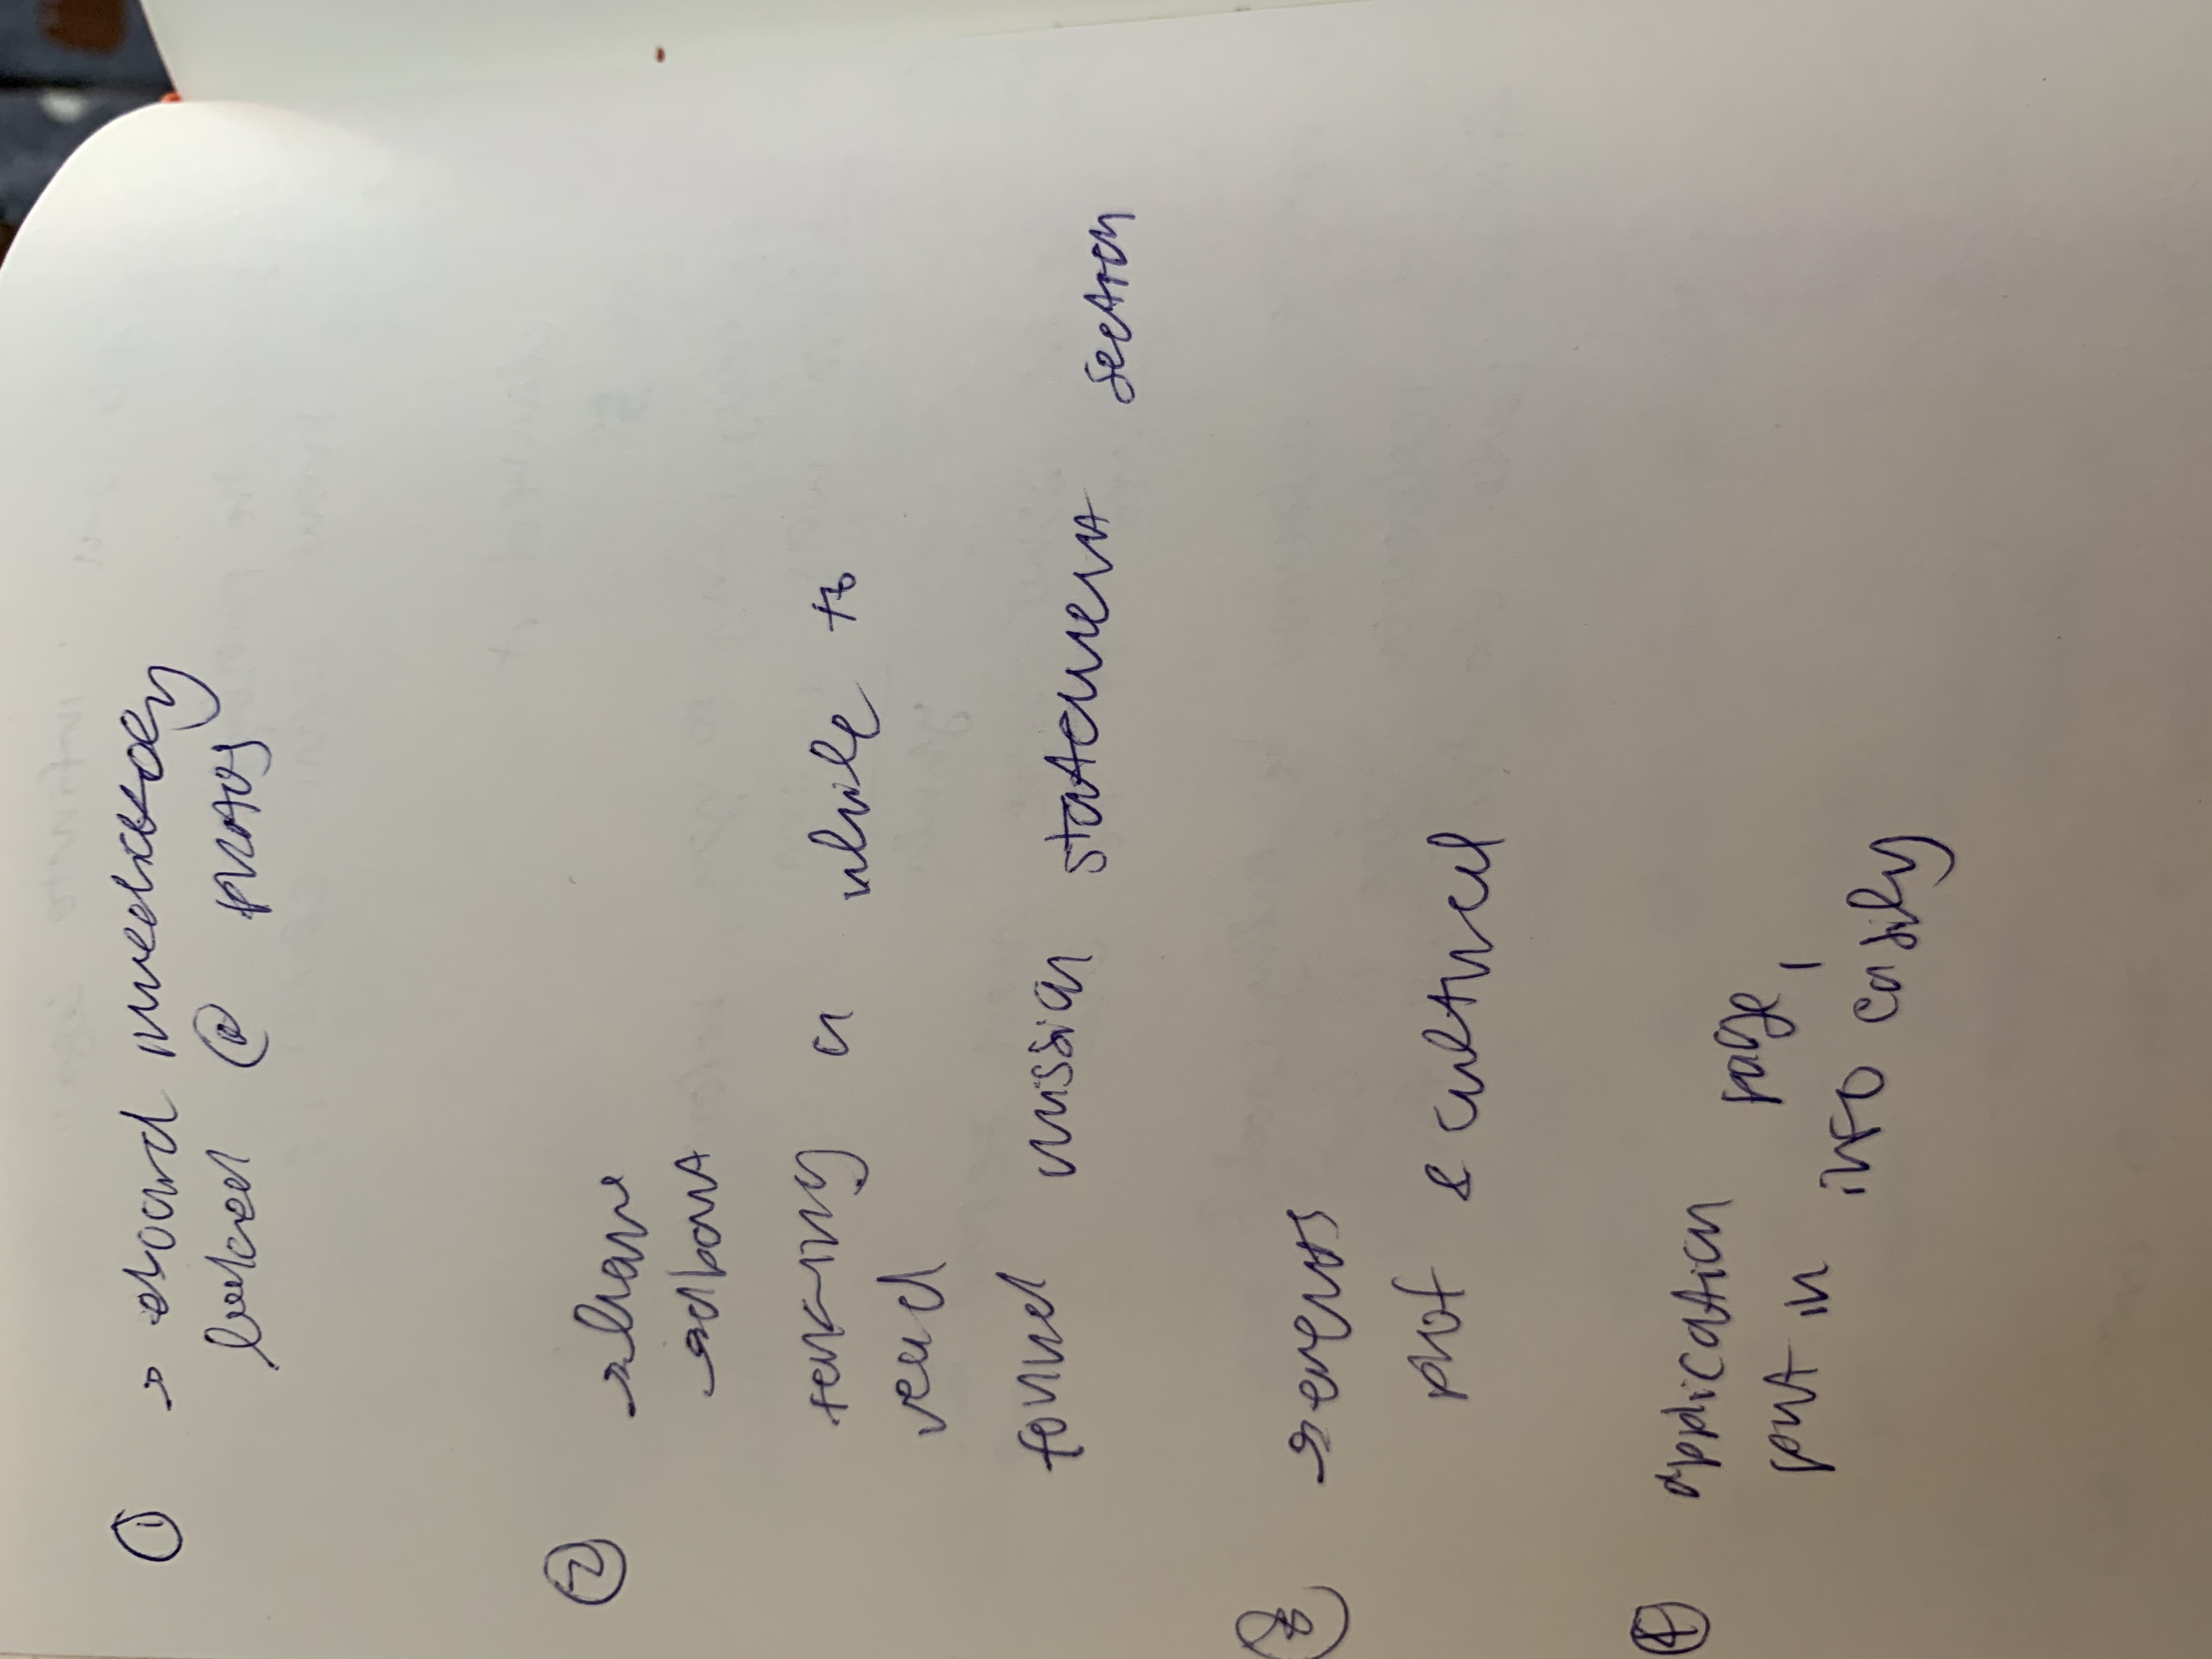 ① → eboard immediately
looked @ photos
② → home
→ about
taking a while to
read
found mission statement section
③ → events
prof & cultural
④ application page,
put in info easily